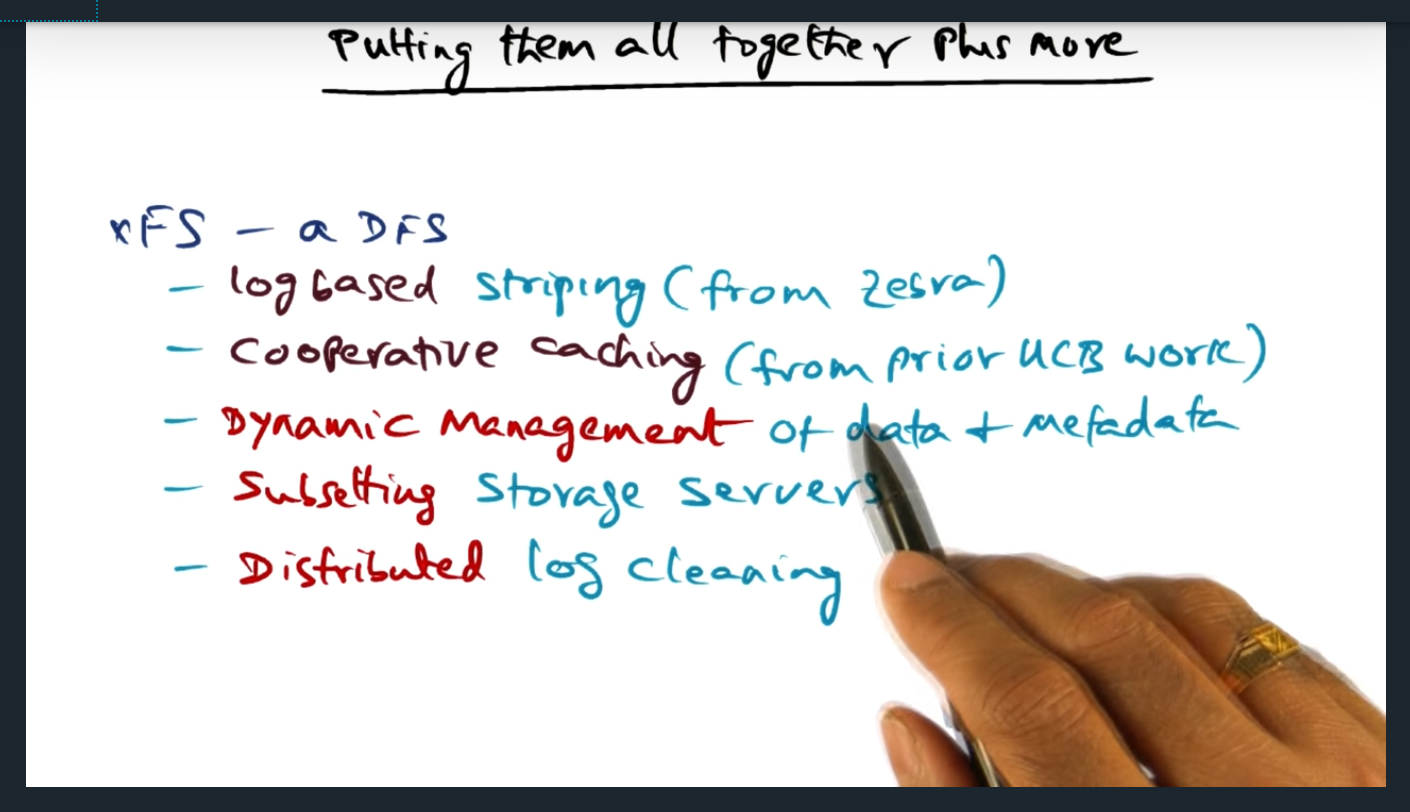 Putting them all together Plus more
xFS – a DFS
– log based striping (from Zebra)
– Cooperative caching (from prior UCB work)
– Dynamic Management of data + metadata
– Subsetting storage servers
– Distributed log cleaning